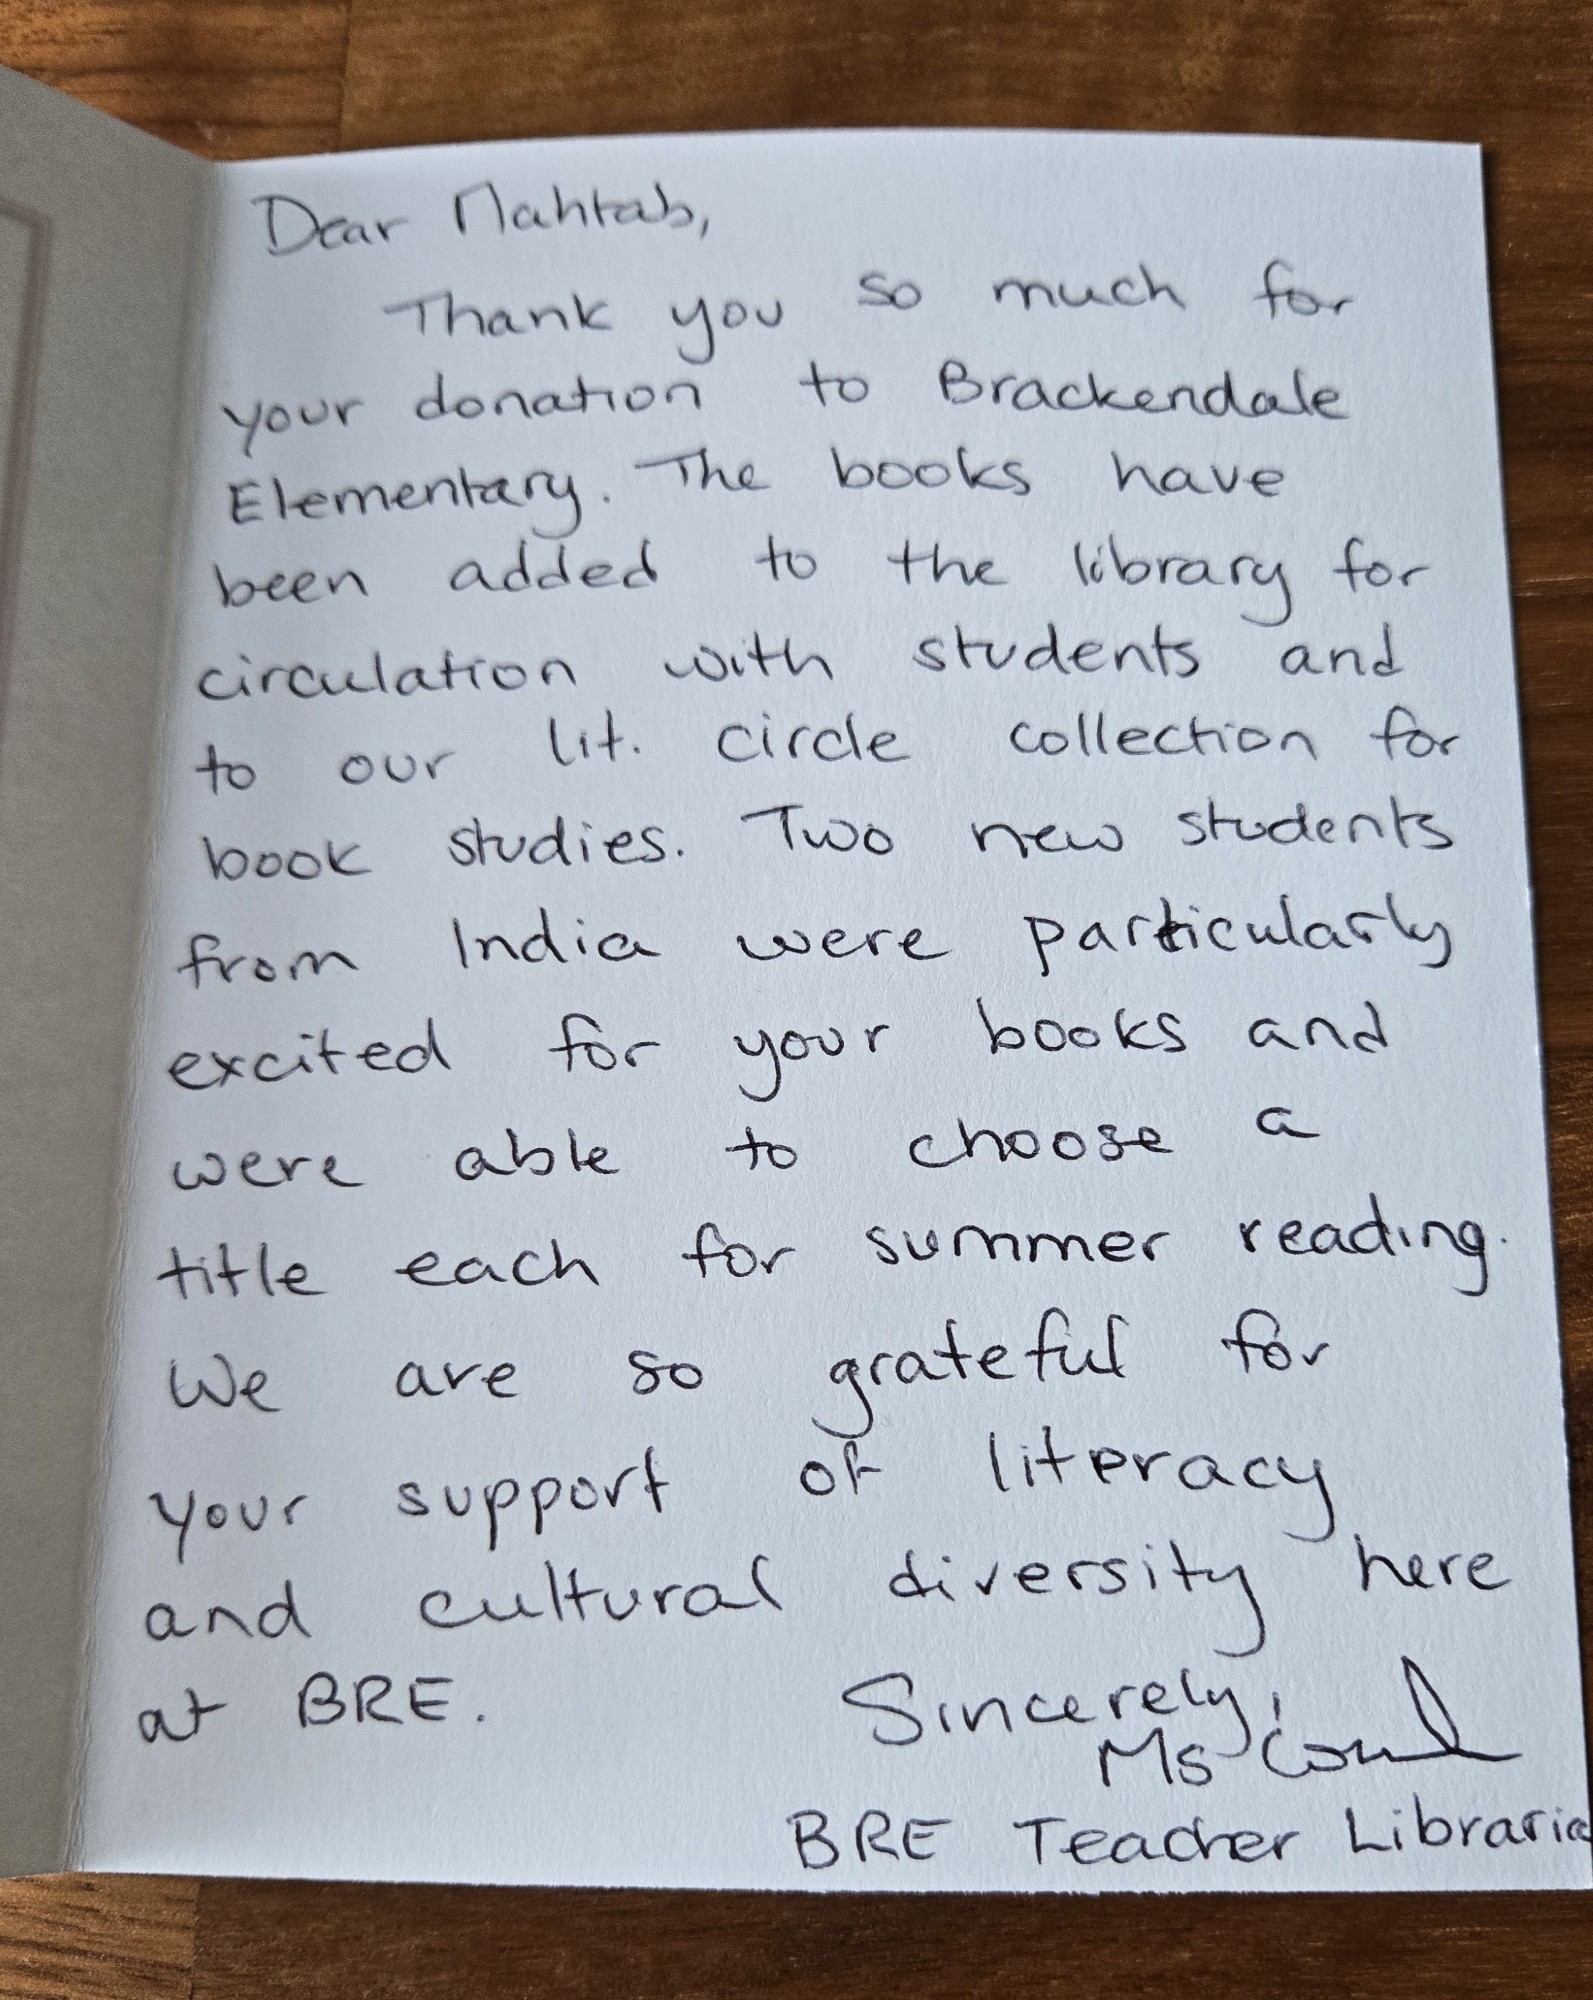 Dear Mahtab,
Thank you so much for
your donation to Brackendale
Elementary. The books have
been added to the library for
circulation with students and
to our lit. circle collection for
book studies. Two new students
from India were particularly
excited for your books and
were able to choose a
title each for summer reading.
We are so grateful for
your support of literacy
and cultural diversity here
at BRE.
Sincerely,
Ms
BRE Teacher Libraria